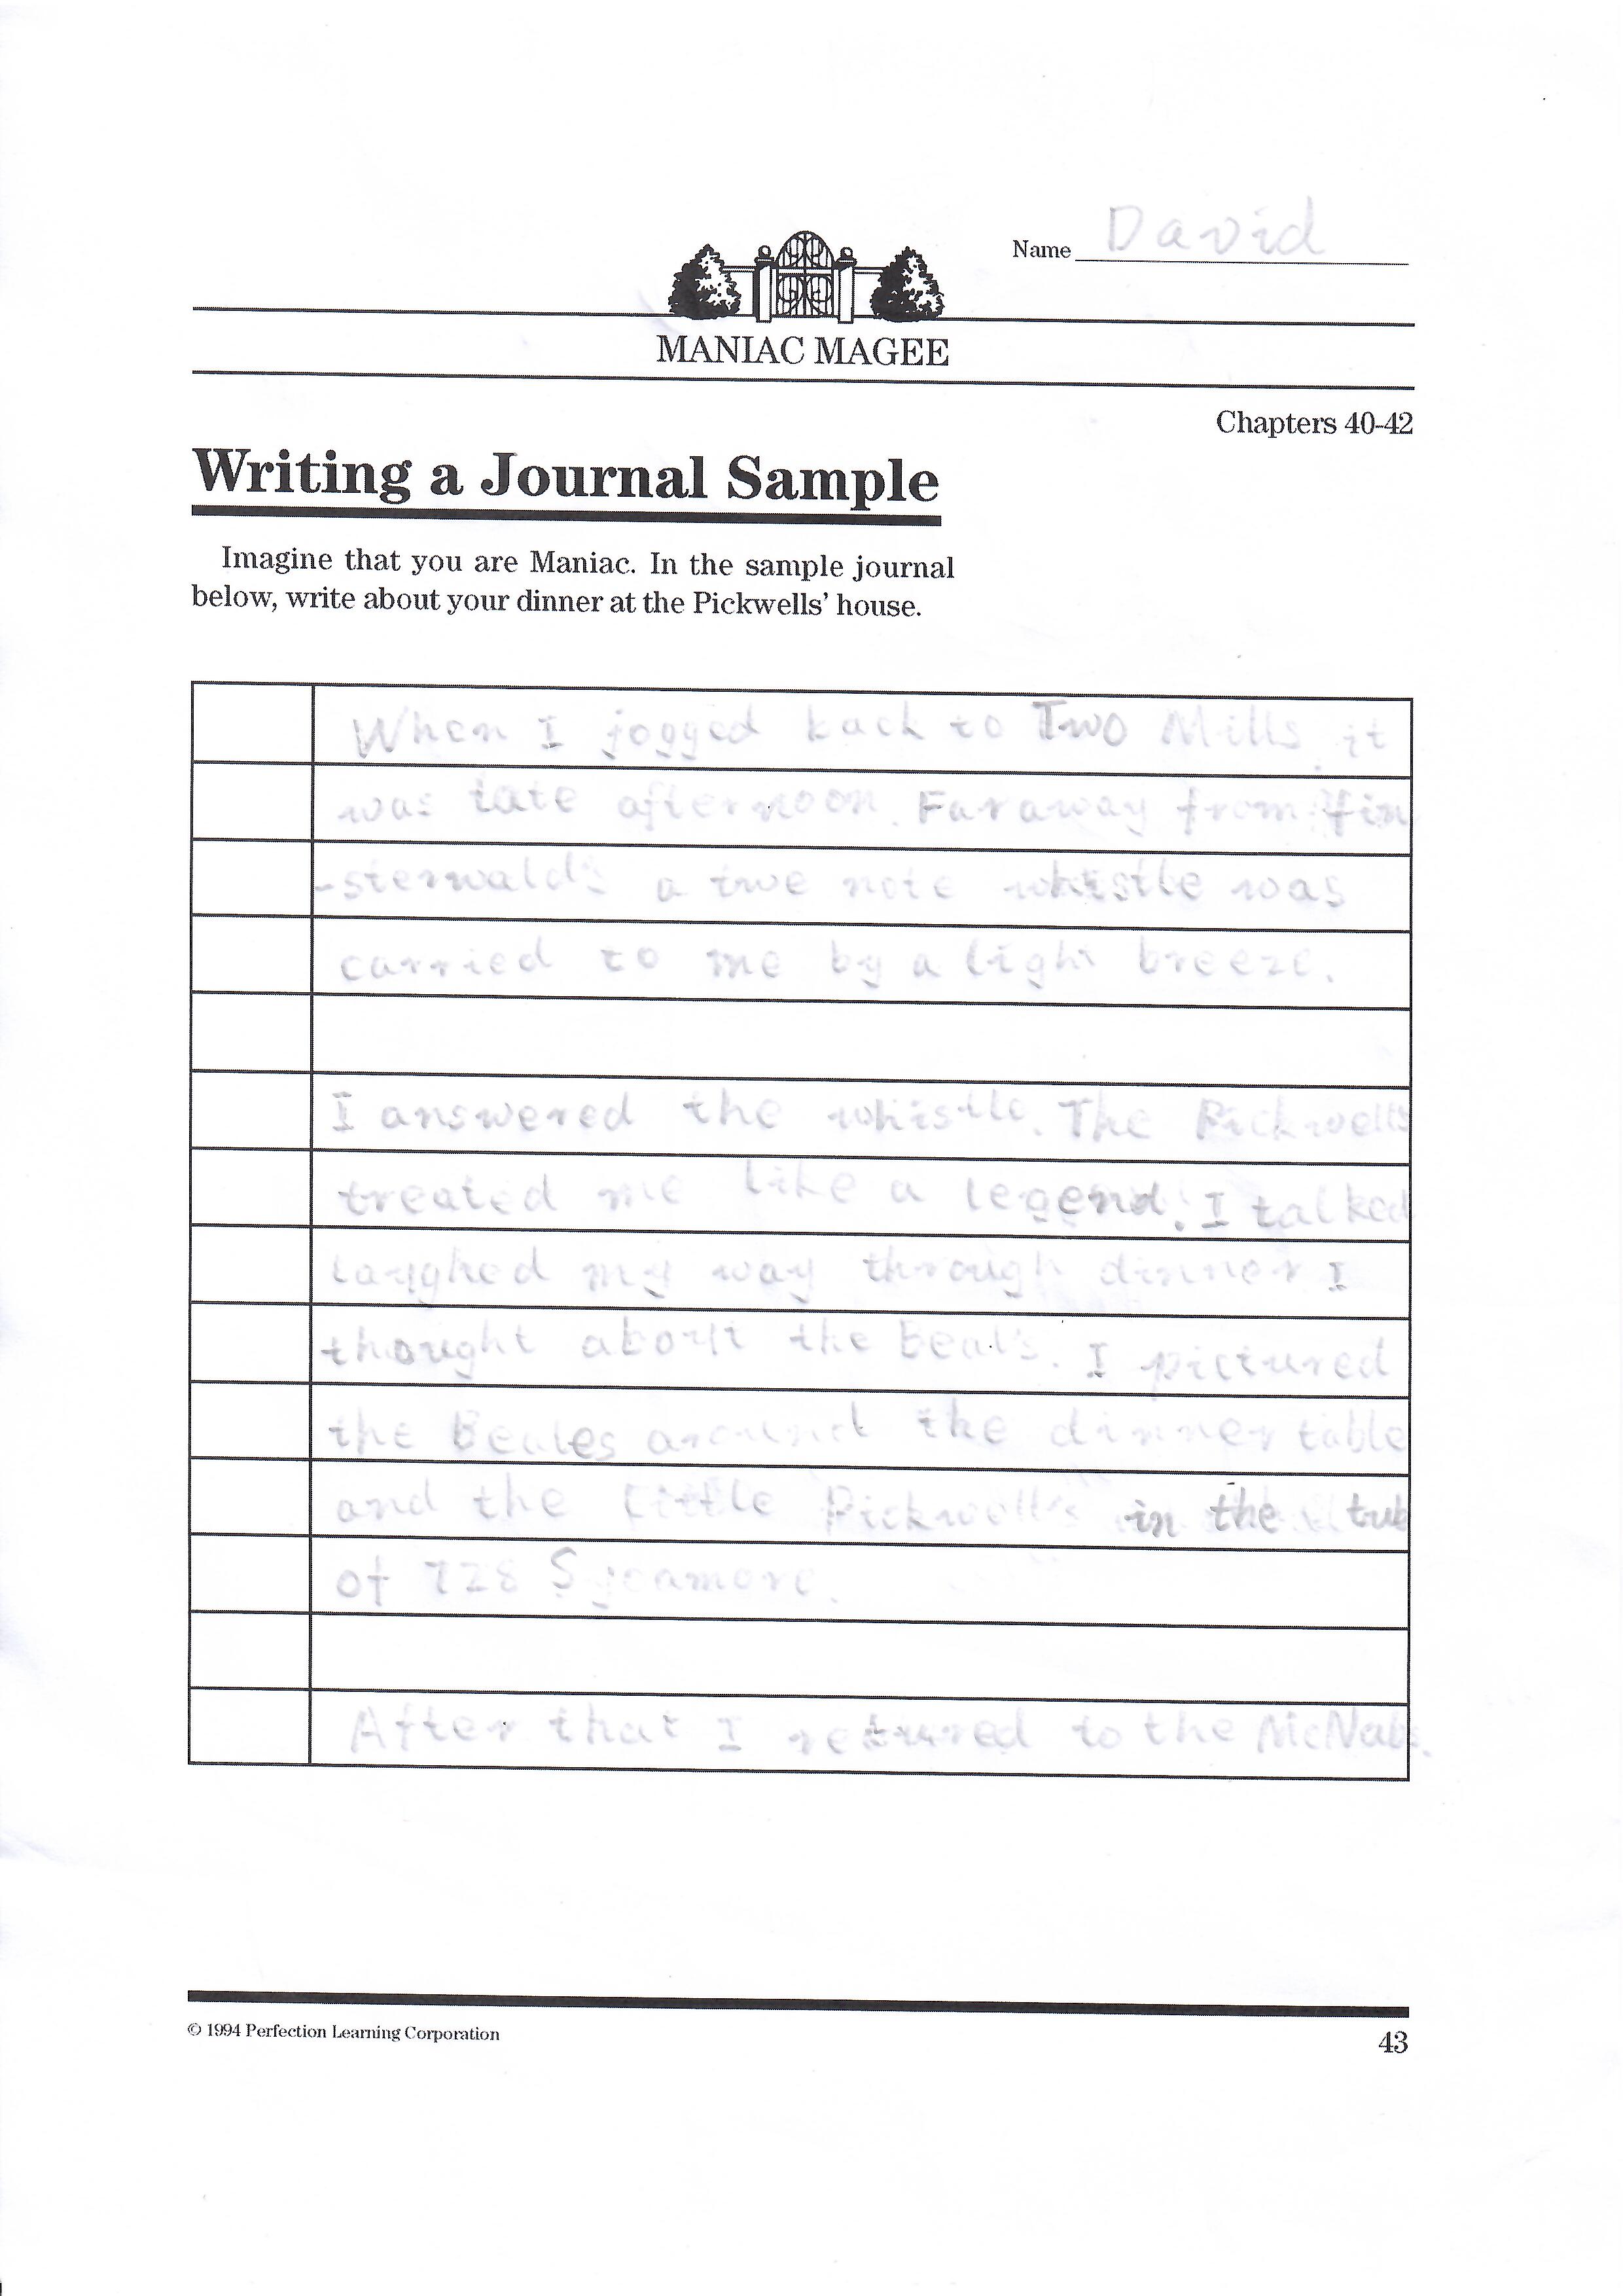 Name David
MANIAC MAGEE
Chapters 40-42
Writing a Journal Sample
Imagine that you are Maniac. In the sample journal
below, write about your dinner at the Pickwells' house.
When I jogged back to Two Mills, it
was late afternoon. Faraway from Fin
-sterwald's a two note whistle was
carried to me by a light breeze.
I answered the whistle. The Pickwells
treated me like a legend. I talked
laughed my way through dinner I
thought about the Beal's. I pictured
the Beales around the dinner table
and the little Pickwell's in the tub
of 728 Sycamore.
After that I retured to the McNabs.
© 1994 Perfection Learning Corporation
43